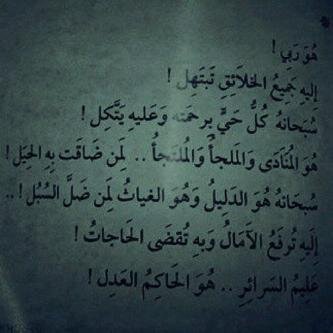 هُوَ رَبِي !
إليهِ جَمِيعُ الخلائِقِ تَبتَهل !
سُبحَانهُ كُلُّ حَيٍّ برحمَته وَعَليهِ يَتَّكِل !
هُوَ المُنَادَى وَالمَلجأُ وَالمُلتَجأُ .. لِمن ضَاقَت بِهِ الحِيَل !
سُبحَانهُ هُوَ الدَلِيلُ وَهُوَ الغياثُ لِمن ضَلَّ السُبُل ! ..
إليهِ تُرفَعُ الآمَالُ وَبِهِ تُقضَى الحَاجاتُ !
عَلِيمُ السَرائِرِ .. هُوَ الحَاكِمُ العَدِل !